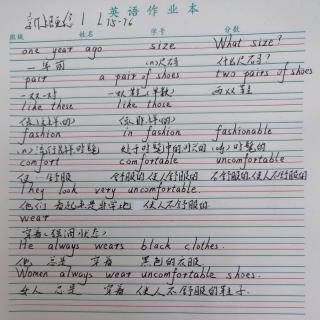 英语作业本
班级 姓名 学号 分数
15-16
one year ago size What size?
一年前 (n)尺码 什么尺码?
pair a pair of shoes two pairs of shoes
一双一对 一双鞋(单数) 两双鞋
like these like those
像这样的 像那样的
fashion in fashion fashionable
(n)流行式样时髦 处于时髦中的 时髦的
comfort comfortable uncomfortable
使…舒服 舒服的使人舒服的 不舒服的使人不舒服的
They look very uncomfortable.
他们 看起来是非常地 使人不舒服的
wear
穿着(强调状态)
He always wears black clothes.
他 总是 穿着 黑色的衣服
Women always wear uncomfortable shoes.
女人 总是 穿着 使人不舒服的鞋子.